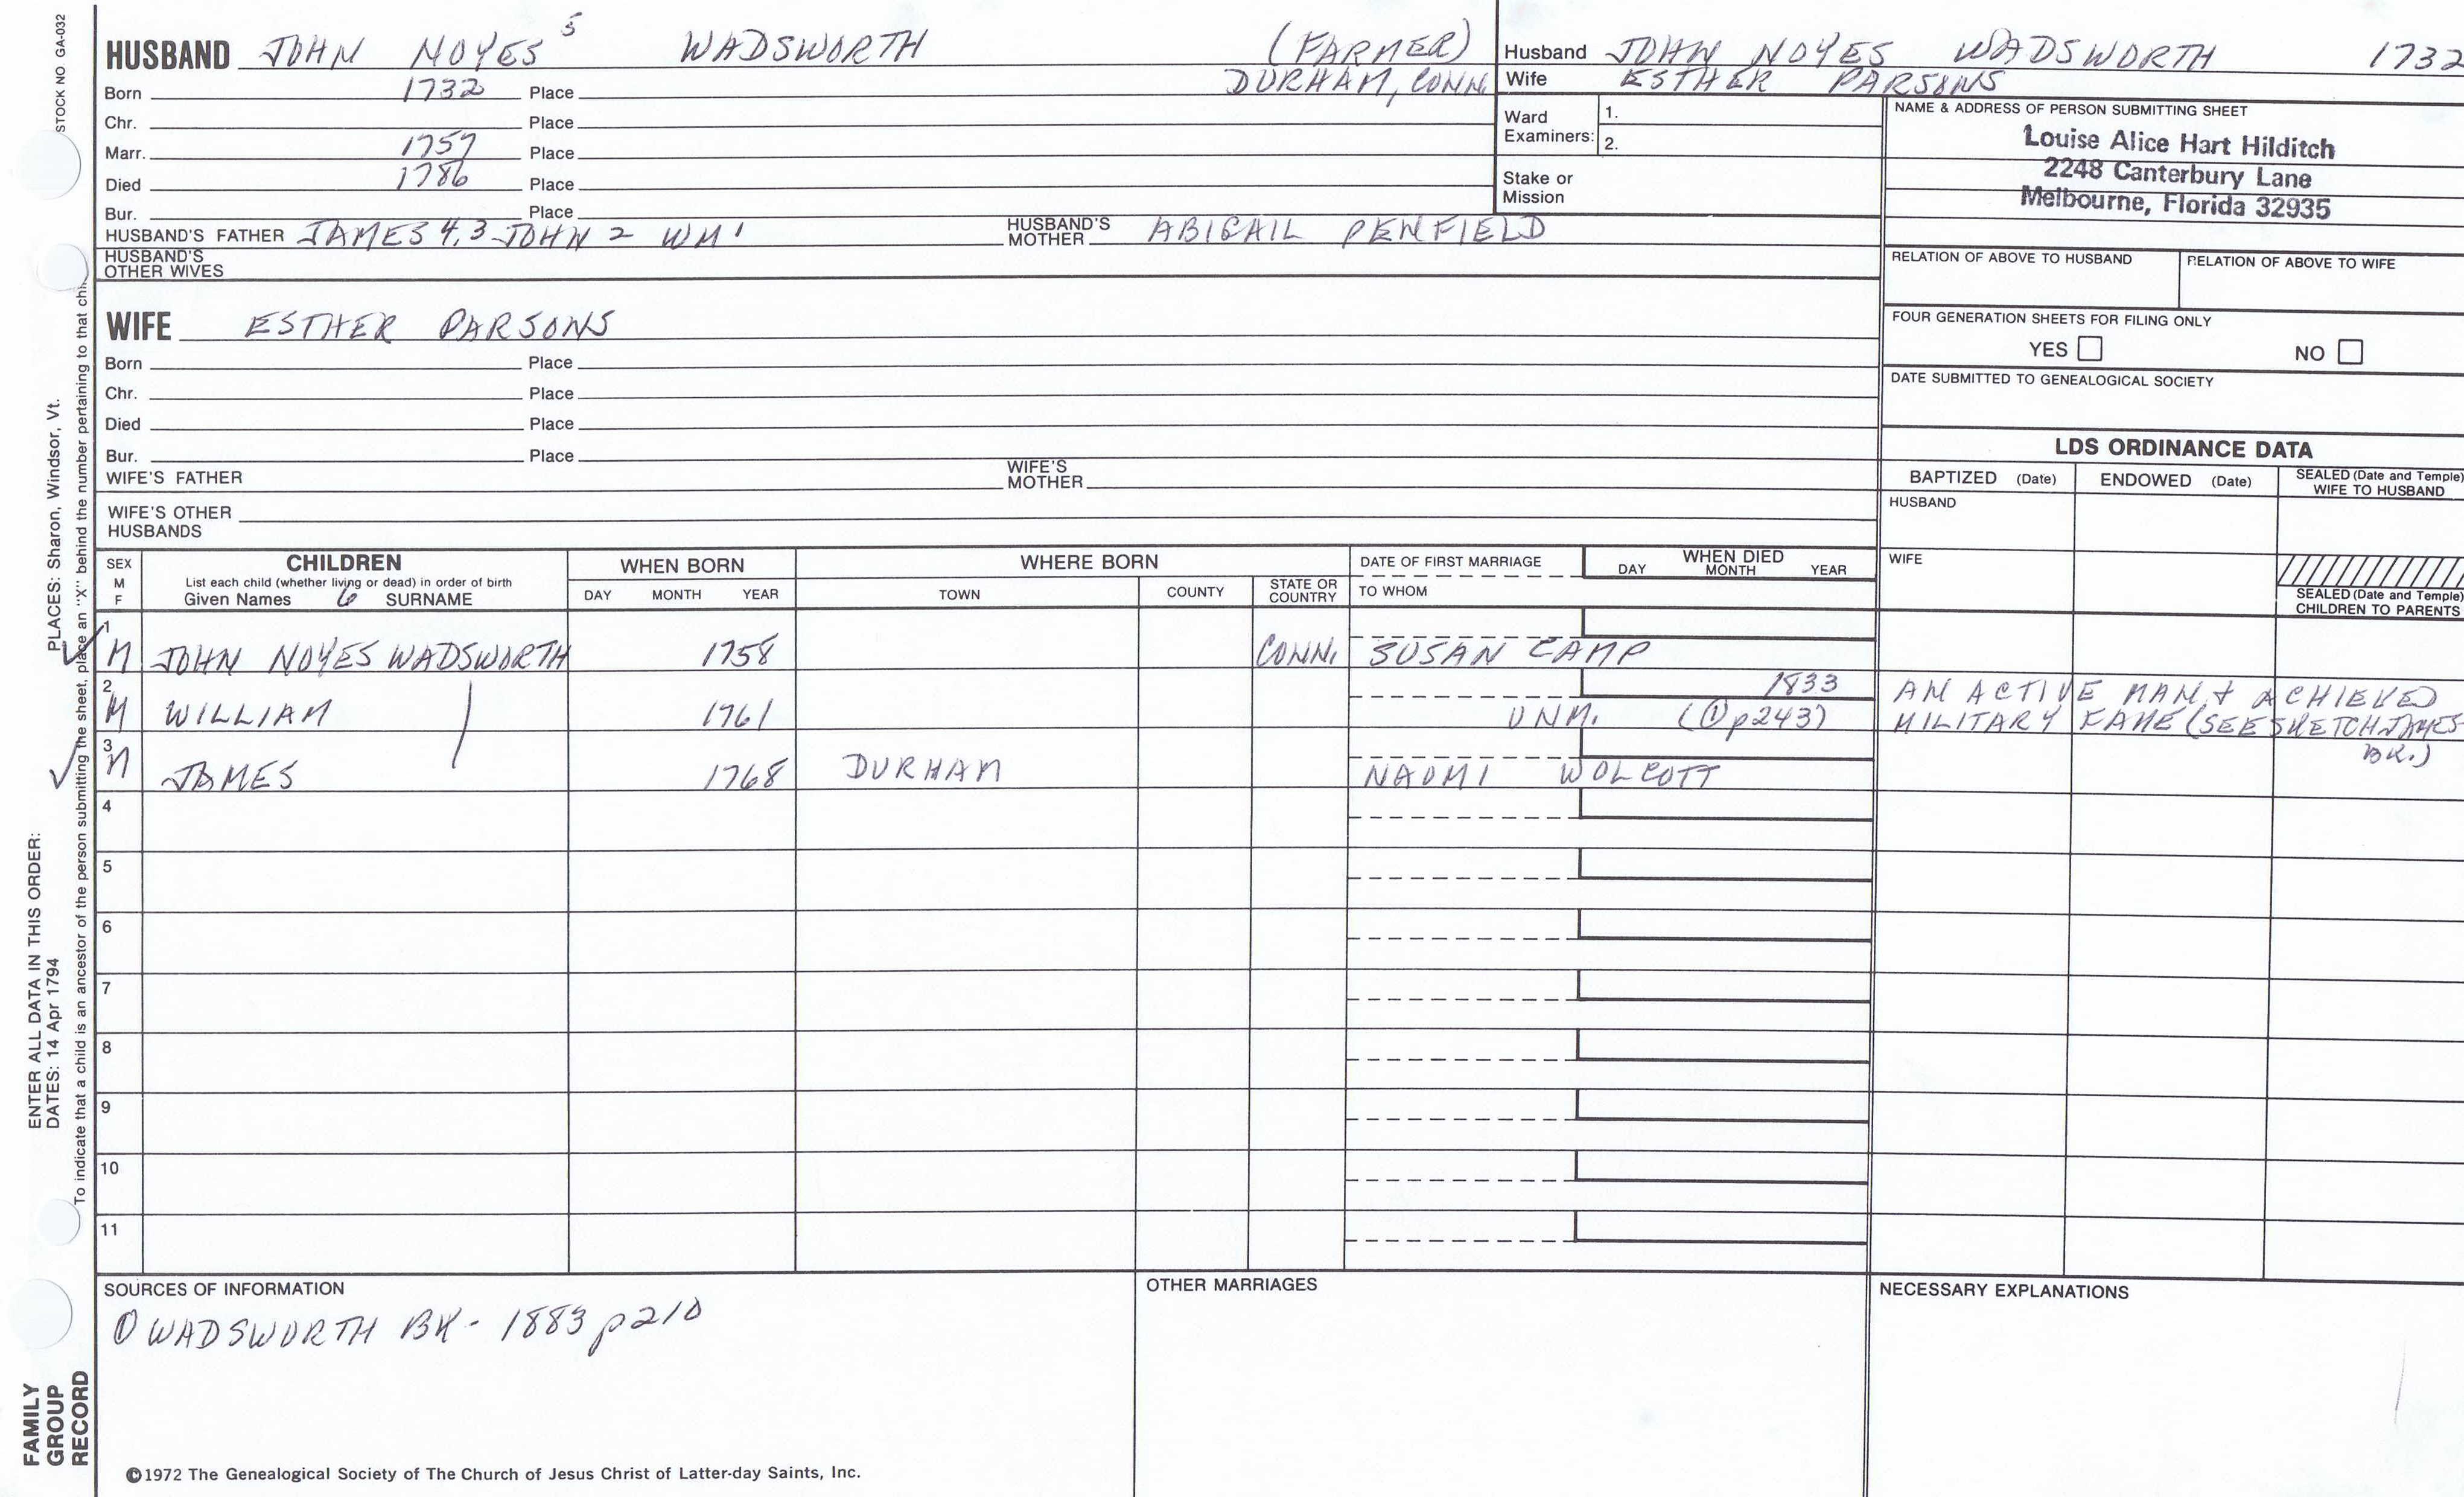 STOCK NO GA-032
HUSBAND JOHN NOYES 5 WADSWORTH (FARMER)
Born 1732 Place DURHAM, CONN.
Chr. Place
Marr. 1757 Place
Died 1786 Place
Bur. Place
HUSBAND'S FATHER JAMES 4, 3 JOHN 2 WM 1 HUSBAND'S MOTHER ABIGAIL PENFIELD
HUSBAND'S OTHER WIVES
WIFE ESTHER PARSONS
Born Place
Chr. Place
Died Place
Bur. Place
WIFE'S FATHER WIFE'S MOTHER
WIFE'S OTHER HUSBANDS
Husband JOHN NOYES WADSWORTH 1732
Wife ESTHER PARSONS
Ward Examiners: 1.
2.
Stake or Mission
NAME & ADDRESS OF PERSON SUBMITTING SHEET
Louise Alice Hart Hilditch
2248 Canterbury Lane
Melbourne, Florida 32935
RELATION OF ABOVE TO HUSBAND RELATION OF ABOVE TO WIFE
FOUR GENERATION SHEETS FOR FILING ONLY
YES NO
DATE SUBMITTED TO GENEALOGICAL SOCIETY
LDS ORDINANCE DATA
BAPTIZED (Date) ENDOWED (Date) SEALED (Date and Temple) WIFE TO HUSBAND
HUSBAND
WIFE
SEALED (Date and Temple) CHILDREN TO PARENTS
SEX M F CHILDREN WHEN BORN WHERE BORN DATE OF FIRST MARRIAGE WHEN DIED
List each child (whether living or dead) in order of birth
Given Names 6 SURNAME DAY MONTH YEAR TOWN COUNTY STATE OR COUNTRY TO WHOM DAY MONTH YEAR
1 M JOHN NOYES WADSWORTH 1758 CONN. SUSAN CAMP
2 M WILLIAM 1761 UNM. 1833 (① p243) AN ACTIVE MAN & ACHIEVED
MILITARY FAME (SEE SKETCH JAMES
BK.)
3 M JAMES 1768 DURHAM NAOMI WOLCOTT
4
5
6
7
8
9
10
11
SOURCES OF INFORMATION
① WADSWORTH BK - 1883 p210
OTHER MARRIAGES
NECESSARY EXPLANATIONS
©1972 The Genealogical Society of The Church of Jesus Christ of Latter-day Saints, Inc.
FAMILY GROUP RECORD
ENTER ALL DATA IN THIS ORDER:
DATES: 14 Apr 1794 PLACES: Sharon, Windsor, Vt.
To indicate that a child is an ancestor of the person submitting the sheet, place an "X" behind the number pertaining to that